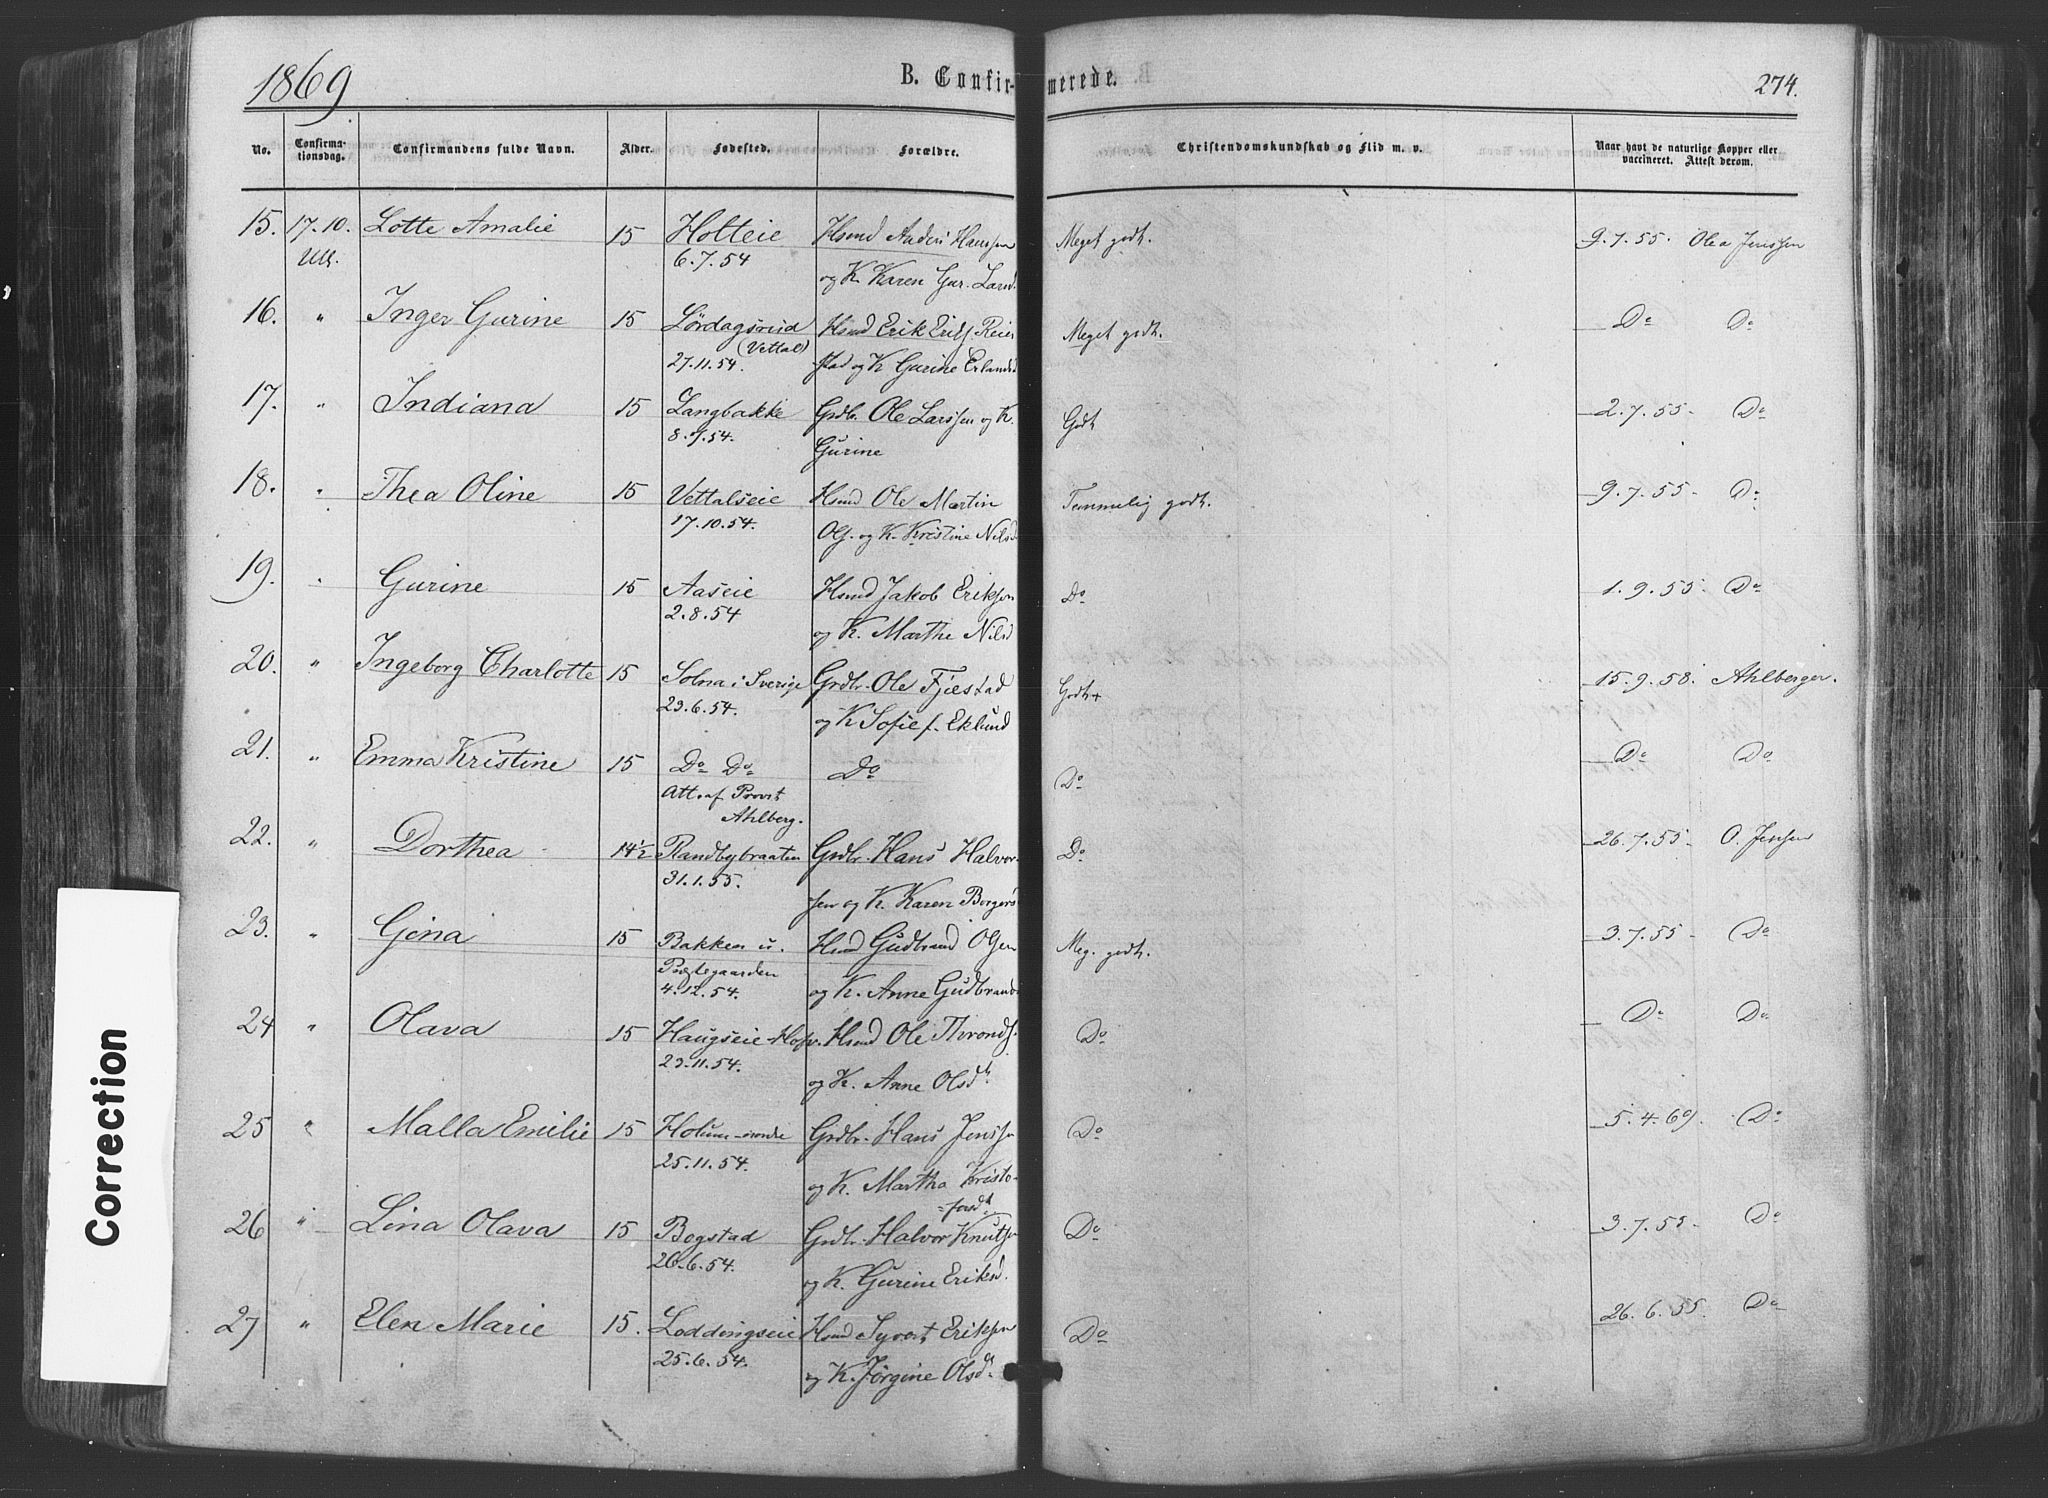 1869
B. Confirmerede.
274.
No.
Confirmationsdag.
Confirmandens fulde Navn.
Alder.
Fødested.
Forældre.
Christendomskundskab og Flid m. v.
Naar havt de naturlige Kopper eller vaccineret. Attest derom.
15. 17.10. Lotte Amalie 15 Holteie Hsmd Anders Hanssen Meget godt. 9.7.55. Olea Jenssen
Ull. 6.7.54 og K. Karen Gur. Larsd.
16. " Inger Gurine 15 Lördagsrud Hsmd Erik Eriks. Reier Meget godt. Do Do
(Vettal)
27.11.54. stad og K Gurine Erlandsd
17. " Indiana 15 Langbakke Grdbr. Ole Larssen og K. Godt 2.7.55 - Do
8.9.54. Gurine
18. " Thea Oline 15 Vettalseie Hsmd Ole Martin Temmelig godt. 9.7.55 - Do
17.10.54. Ols. og K. Kristine Nilsd
19. " Gurine 15 Aaseie Hsmd Jakob Eriksen Do 1.9.55. Do
2.8.54 og K. Marthe Nilsd
20. " Ingeborg Charlotte 15 Solna i Sverige Grdbr. Ole Fjestad Godt+ 15.9.58. Ahlberger.
23.6.54. og K Sofie f. Eklund
21. " Emma Kristine 15 Do Do Do Do Do Do
Att. af Provst
Ahlberg.
22. " Dorthea 14½ Randbybraaten Grdbr. Hans Halvor- Do 26.7.55 O. Jenssen
31.1.55. sen og K. Karen Borgers
23. " Gina 15 Bakken u. Hsmd Gudbrand Olsen Meg. godt. 3.7.55 - Do
Præstegaarden
4.12.54. og K. Anne Gudbrands
24 " Olava 15 Haugseie Hofv. Hsmd Ole Thronds. Do Do Do
23.11.54. og K. Anne Olsdt.
25 " Malla Emilie 15 Holum nordre Grdbr. Hans Jenssen Do 5.4.69. Do
25.11.54. og K. Martha Kristo-
forsdt
26 " Lina Olava 15 Bogstad Grdbr. Halvor Knutsen Do 3.7.55 - Do
26.6.54. og K. Gurine Eriksd.
27 " Elen Marie 15. Loddingseie Hsmd Syvert Eriksen Do 26.6.55. Do
25.6.54. og K. Jørgine Olsdt.
Correction